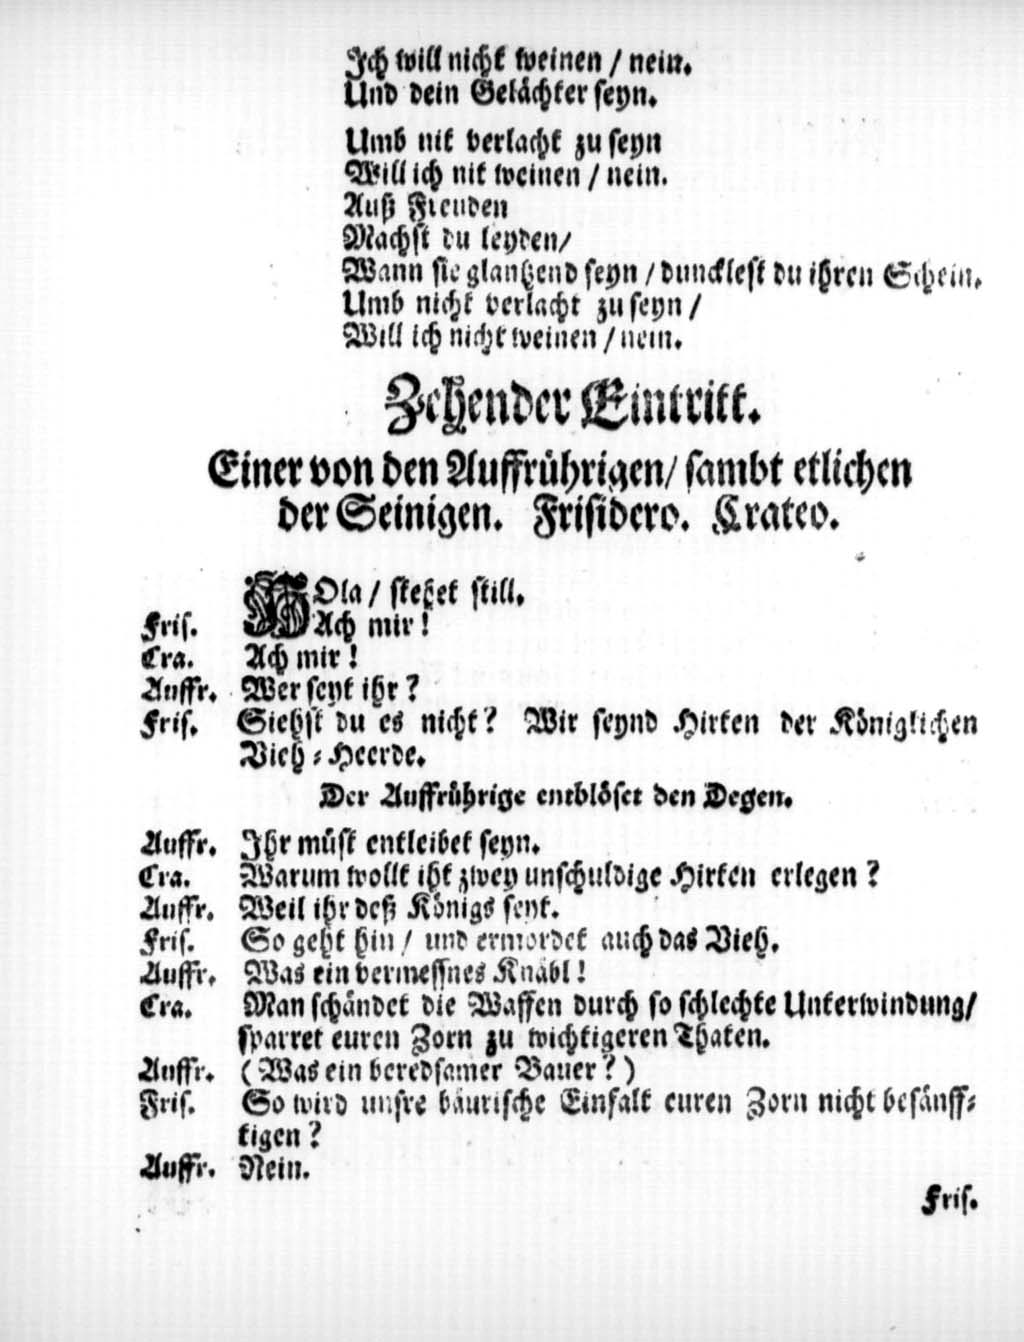 Ich will nicht weinen / nein.
Und dein Gelächter seyn.
Umb nit verlacht zu seyn
Will ich nit weinen / nein.
Auß Freuden
Machst du leyden/
Wann sie glantzend seyn / duncklest du ihren Schein.
Umb nicht verlacht zu seyn /
Will ich nicht weinen / nein.
Zehender Eintritt.
Einer von den Auffrührigen/ sambt etlichen
der Seinigen. Frisidero. Crateo.
HOla / stehet still.
Fris. Ach mir!
Cra. Ach mir!
Auffr. Wer seyt ihr?
Fris. Siehst du es nicht? Wir seynd Hirten der Königlichen
Vieh-Heerde.
Der Auffrührige entblöset den Degen.
Auffr. Ihr müst entleibet seyn.
Cra. Warum wollt iht zwey unschuldige Hirten erlegen?
Auffr. Weil ihr deß Königs seyt.
Fris. So geht hin / und ermordet auch das Vieh.
Auffr. Was ein vermessnes Knäbl!
Cra. Man schändet die Waffen durch so schlechte Unterwindung/
sparret euren Zorn zu wichtigeren Thaten.
Auffr. (Was ein beredsamer Bauer?)
Fris. So wird unsre bäurische Einfalt euren Zorn nicht besänff-
tigen?
Auffr. Nein.
Fris.